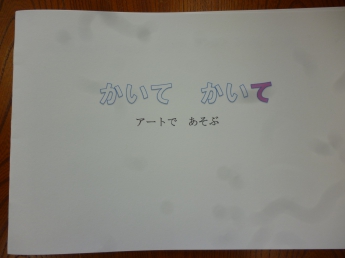 かいて　かいて
アートで　あそぶ